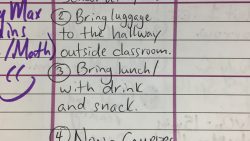 Max
② Bring luggage
to the hallway
outside classroom.
/Math)
③ Bring lunch/
with drink
and snack.
④